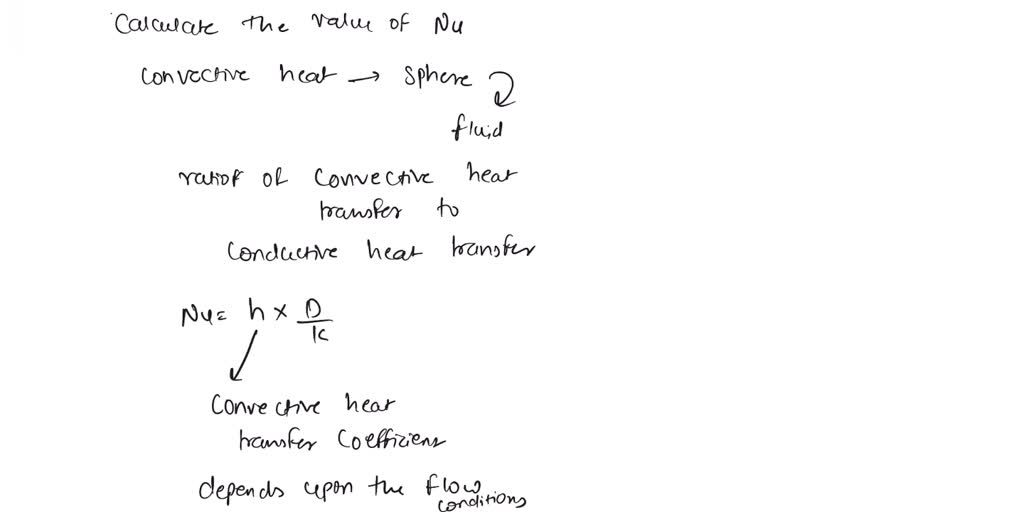 Calculate the value of Nu
Convective heat → sphere
fluid
ratior of convective heat
transfer to
conductive heat transfer
Nu= h × D/k
Convective heat
transfer coefficiens
depends upon the flow
conditions